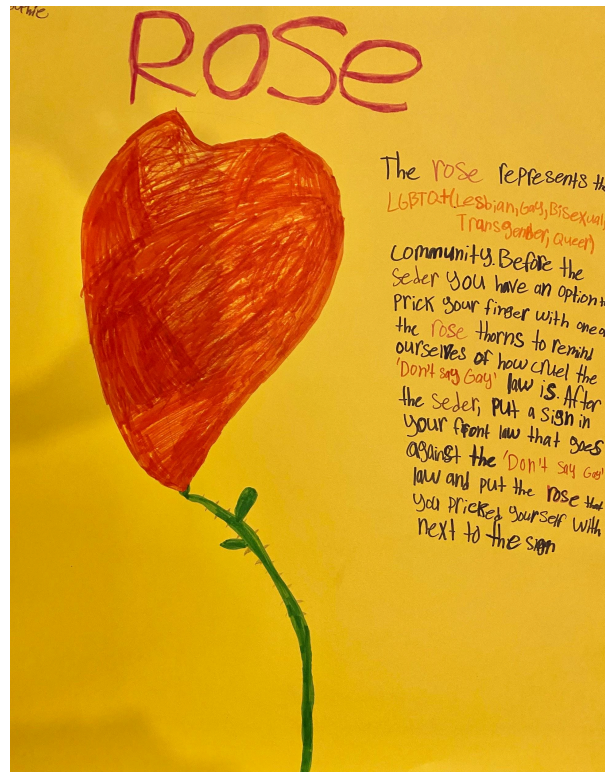 ROSE
The rose represents the
LGBTQ+(Lesbian, Gay, Bisexual,
Transgender, Queer)
community. Before the
Seder you have an option to
prick your finger with one of
the rose thorns to remind
ourselves of how cruel the
'Don't say Gay' law is. After
the seder, put a sign in
your front law that goes
against the 'Don't say Gay'
law and put the rose that
you pricked yourself with
next to the sign